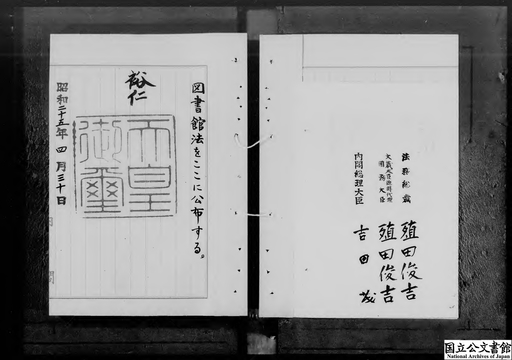 法務総裁 殖田俊吉
大蔵大臣臨時代理
国務大臣 殖田俊吉
内閣総理大臣 吉田茂
図書館法をここに公布する。
裕仁
天皇
御璽
昭和二十五年四月三十日
国立公文書館
National Archives of Japan